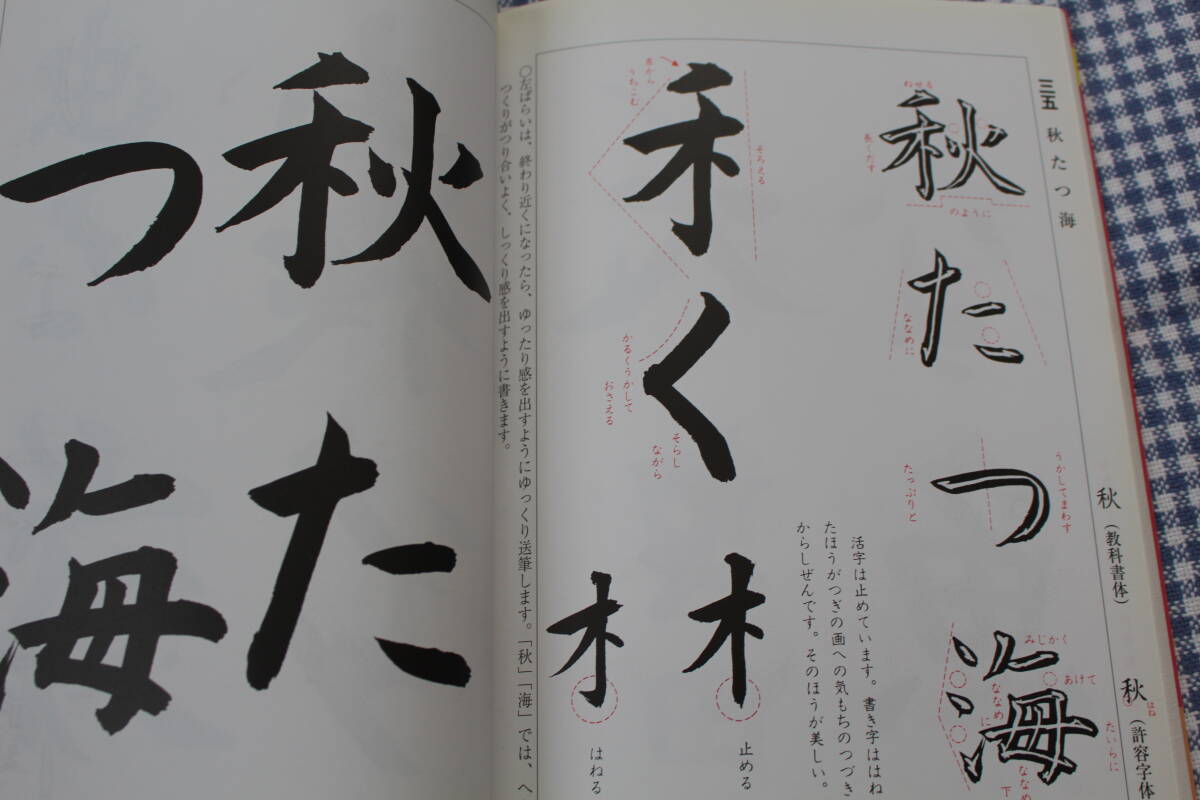 三五 秋たつ海
秋(教科書体)
秋(許容字体
はね
秋たつ海
ねせる
長くだす
のように
ななめに
うかしてまわす
たっぷりと
みじかく
あけて
ななめに
たいらに
ななめ下
活字は止めています。書き字ははね
たほうがつぎの画への気もちのつづき
からしぜんです。そのほうが美しい。
禾
く
そろえる
うちこむ
かるくうかして
おさえる
そらし
ながら
止める
はねる
○左ばらいは、終わり近くになったら、ゆったり感を出すようにゆっくり送筆します。「秋」「海」では、へ
つくりがつり合いよく、しっくり感を出すように書きます。
秋た
つ海